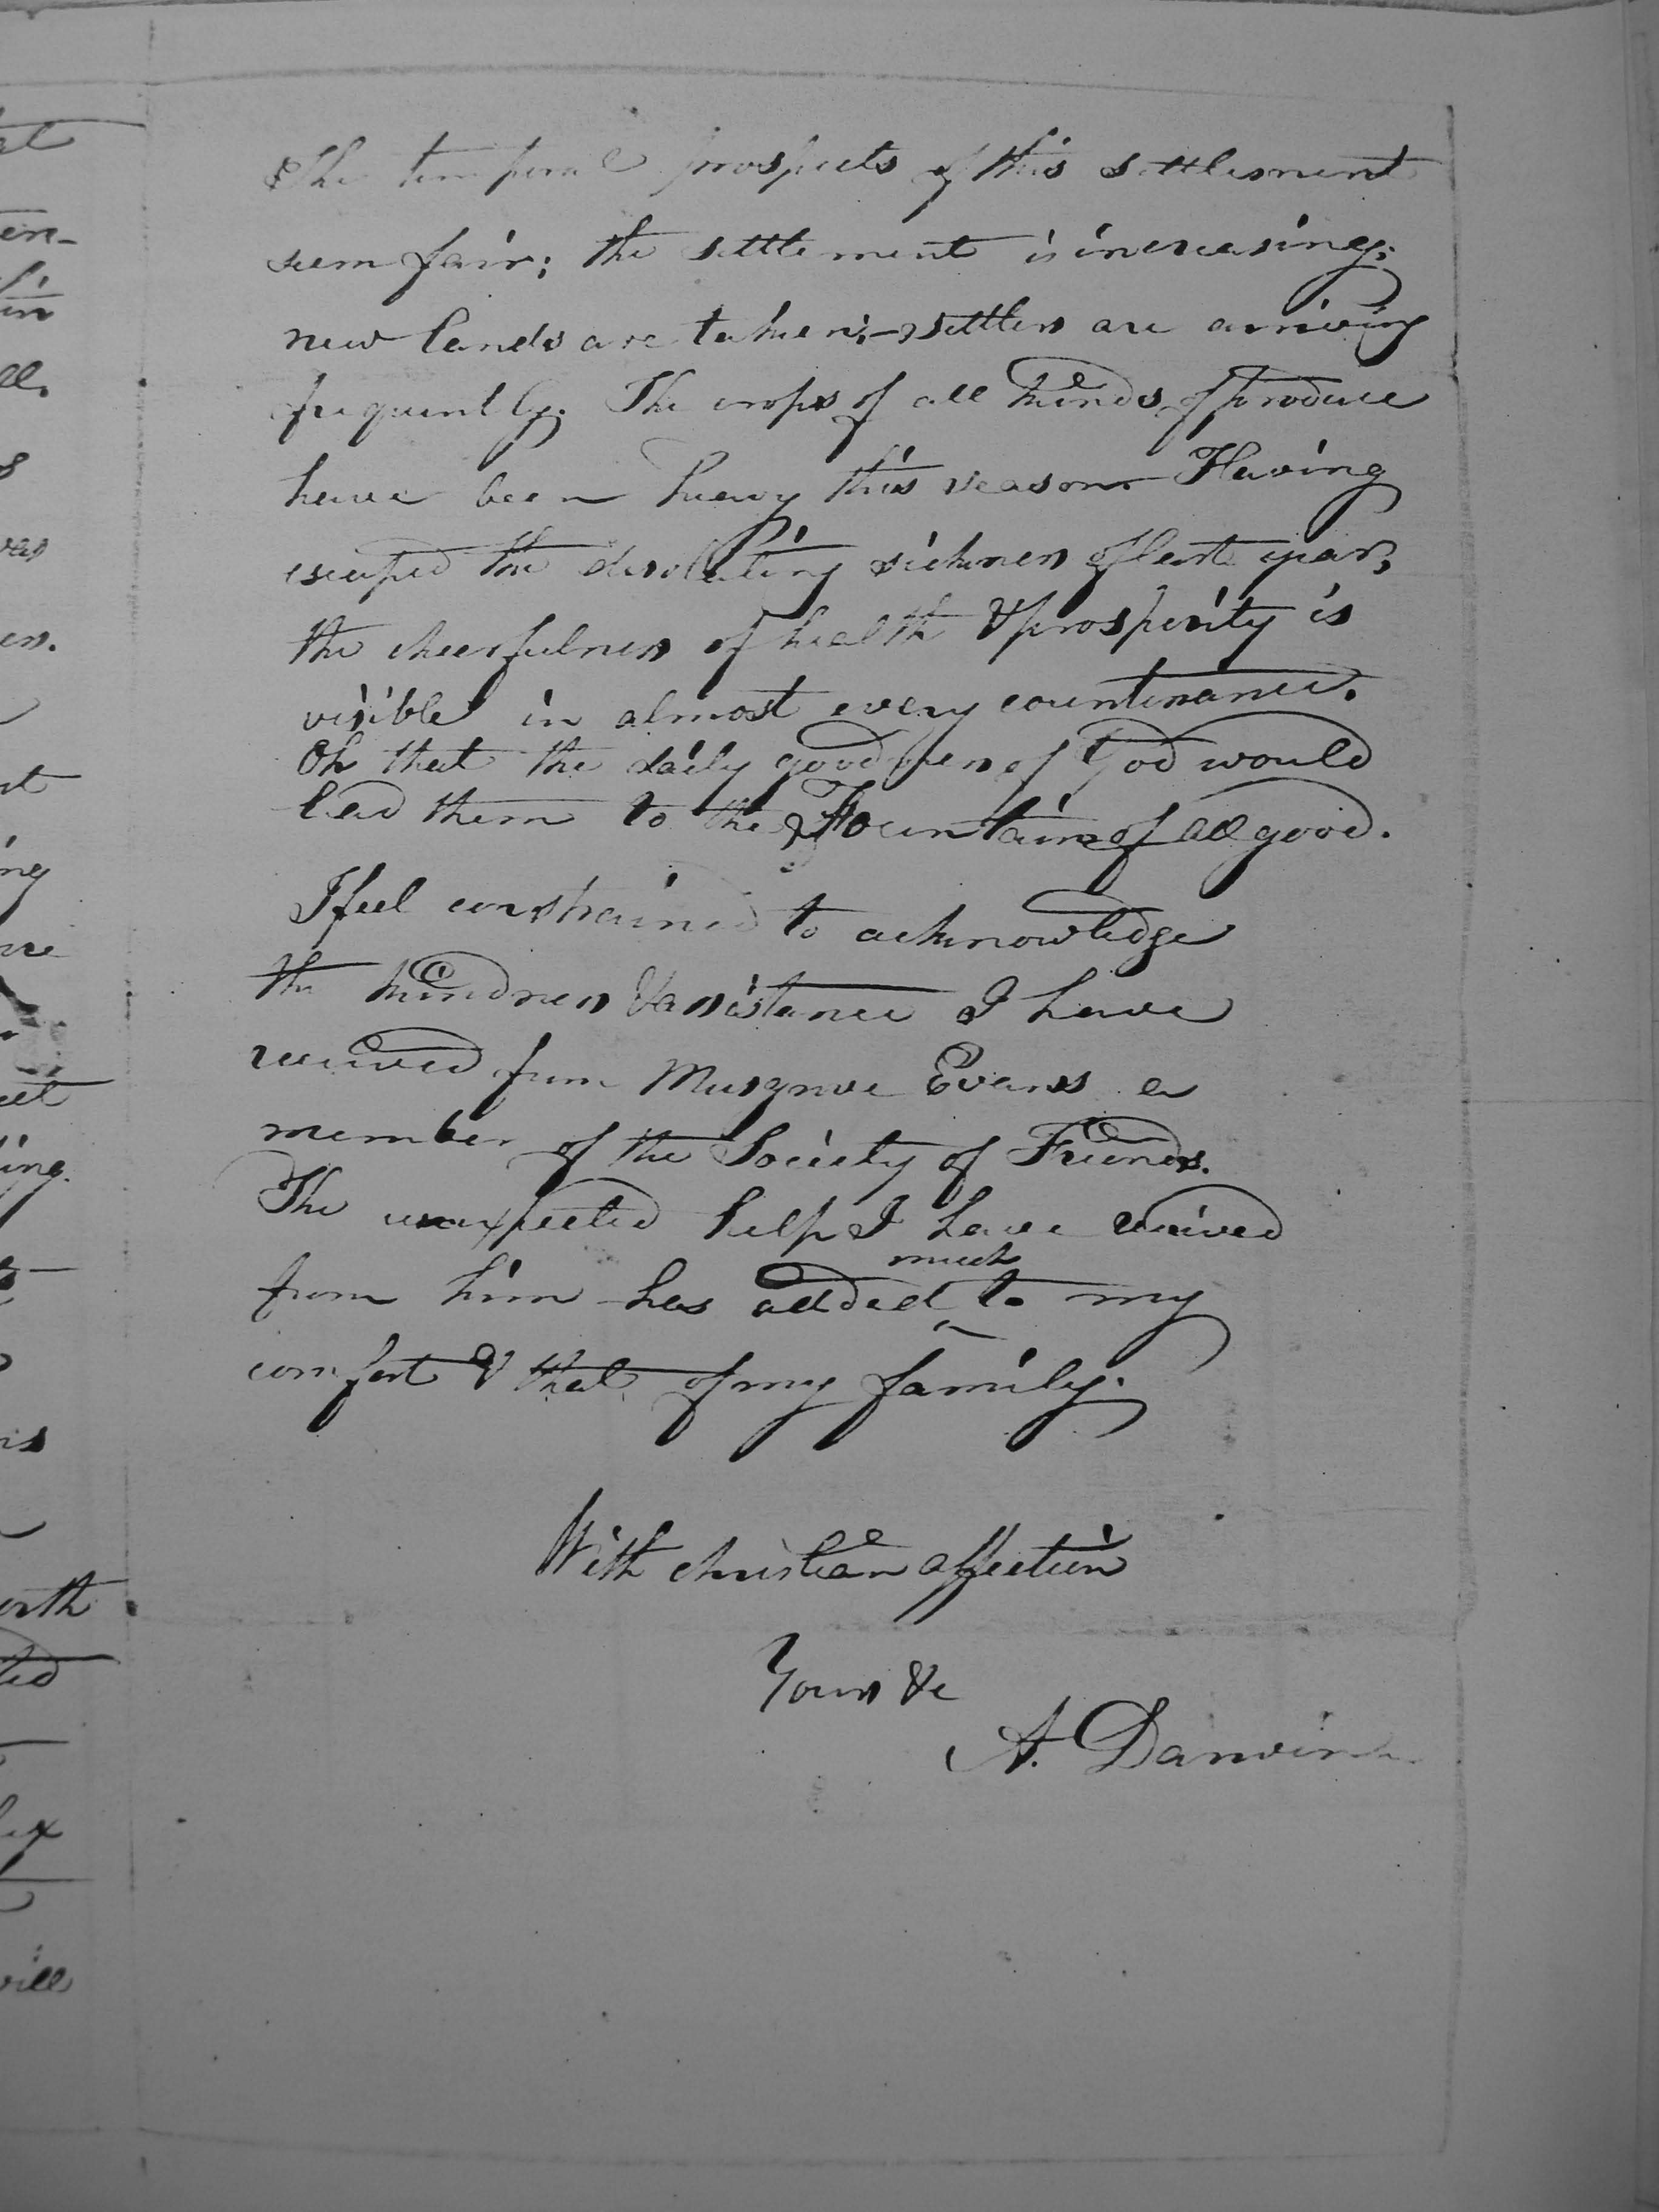 The temporal prospects of this settlement
seem fair; the settlement is increasing;
new lands are taken;—settlers are arriving
frequently. The crops of all kinds of produce
have been heavy this season. Having
escaped the desolating sickness of last year,
the cheerfulness of health & prosperity is
visible in almost every countenance.
Oh that the daily goodness of God would
lead them to the Fountain of all good.
I feel constrained to acknowledge
the kindness & assistance I have
received from Musgrove Evans a
member of the Society of Friends.
The unexpected help I have received
much
from him has added to my
comfort & that of my family.
With christian affection
Yours &c
A. Darwin